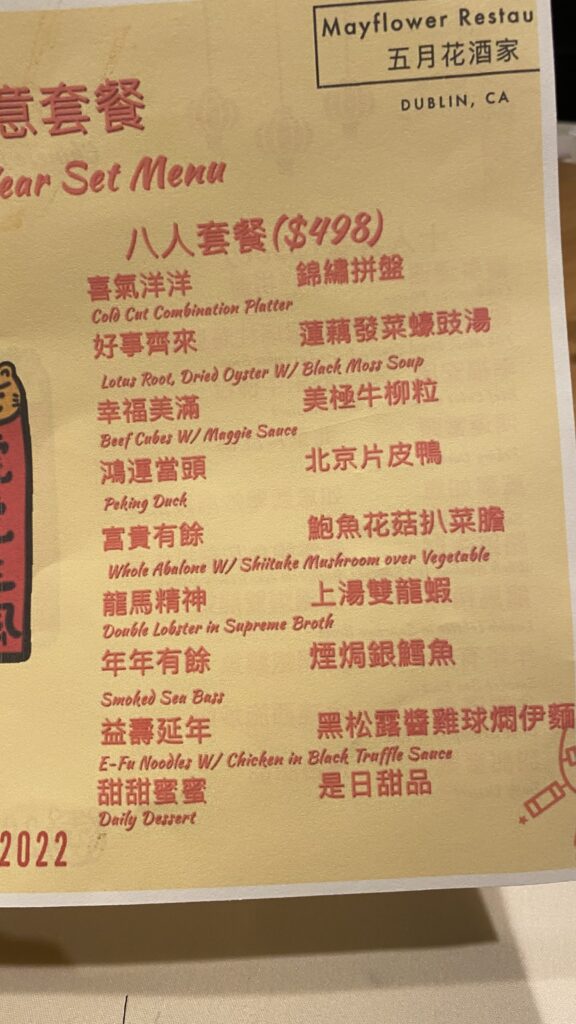 Mayflower Restau
五月花酒家
DUBLIN, CA
意套餐
Year Set Menu
八人套餐($498)
喜氣洋洋 錦繡拼盤
Cold Cut Combination Platter
好事齊來 蓮藕發菜蠔豉湯
Lotus Root, Dried Oyster W/ Black Moss Soup
幸福美滿 美極牛柳粒
Beef Cubes W/ Maggie Sauce
鴻運當頭 北京片皮鴨
Peking Duck
富貴有餘 鮑魚花菇扒菜膽
Whole Abalone W/ Shiitake Mushroom over Vegetable
龍馬精神 上湯雙龍蝦
Double Lobster in Supreme Broth
年年有餘 煙焗銀鱈魚
Smoked Sea Bass
益壽延年 黑松露醬雞球燜伊麵
E-Fu Noodles W/ Chicken in Black Truffle Sauce
甜甜蜜蜜 是日甜品
Daily Dessert
2022